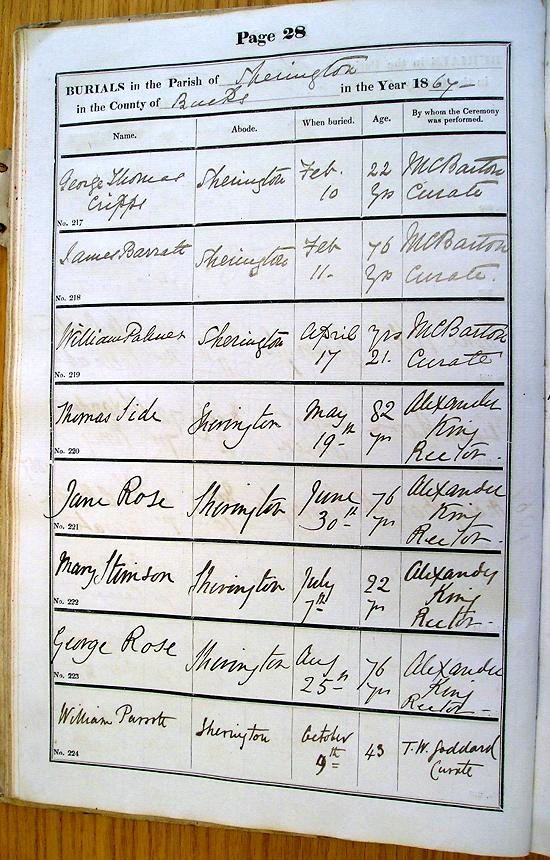 Page 28
BURIALS in the Parish of Sherington
in the County of Bucks in the Year 1867
Name. Abode. When buried. Age. By whom the Ceremony was performed.
George Thomas Sherington Feb. 22 McBarton
Cripps 10 yrs Curate
No. 217
James Barratt Sherington Feb 76 McBarton
11- yrs Curate.
No. 218
William Palmer Sherington April yrs McBarton
17 21. Curate
No. 219
Thomas Side Sherington May 82 Alexander
19th yrs King
Rector.
No. 220
Jane Rose Sherington June 76 Alexander
30th yrs King
Rector.
No. 221
Mary Stimson Sherington July 22 Alexander
7th yrs King
Rector.
No. 222
George Rose Sherington Aug 76 Alexander
25th yrs King
Rector
No. 223
William Parrott Sherington October 43 T.W. Goddard
9th Curate
No. 224